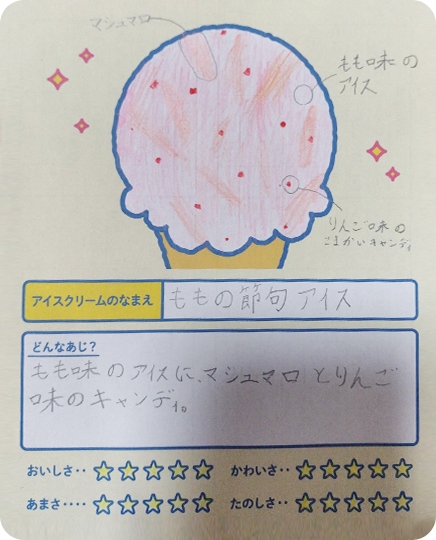 マシュマロ
もも味の
アイス
りんご味の
こまかいキャンディ
アイスクリームのなまえ
ももの節句アイス
どんなあじ?
もも味のアイスに、マシュマロとりんご
味のキャンディ。
おいしさ‥ ☆☆☆☆☆ かわいさ‥ ☆☆☆☆☆
あまさ‥‥ ☆☆☆☆☆ たのしさ‥ ☆☆☆☆☆